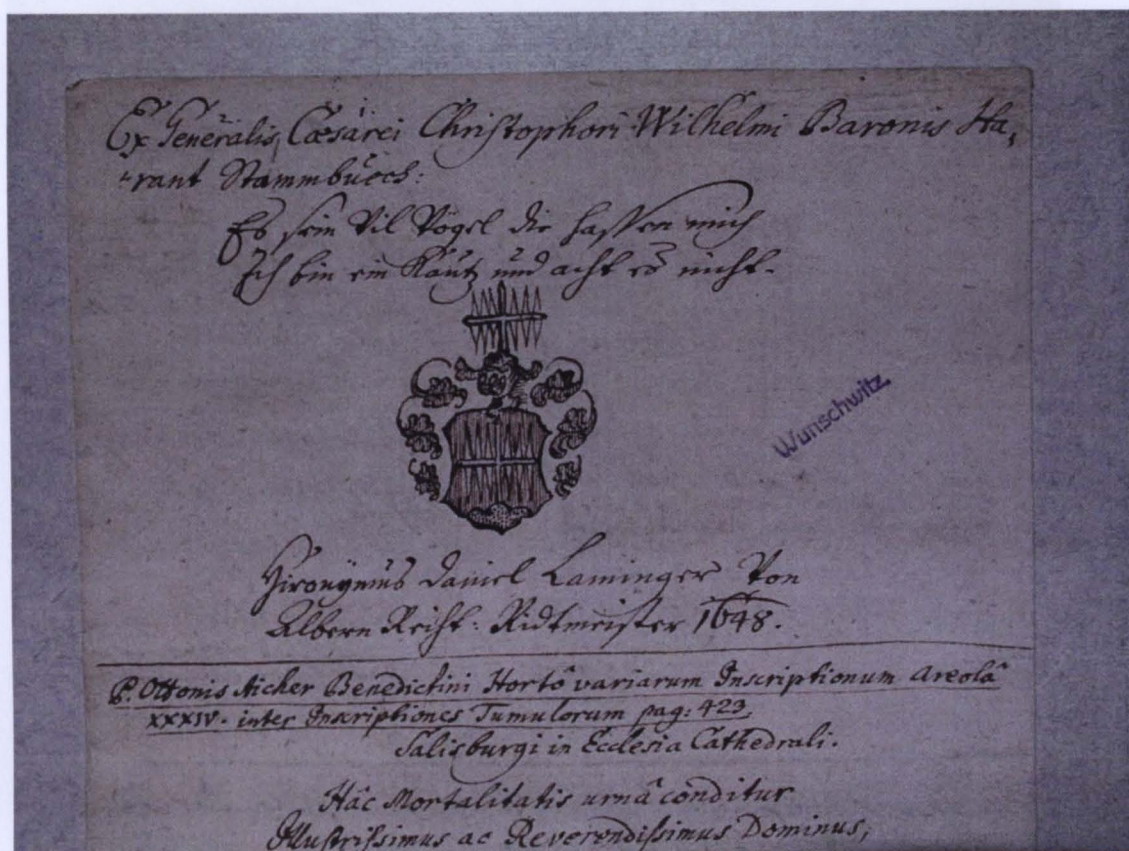 Ex Generalis Cæsarei Christophori Wilhelmi Baronis Ha,
rant Stammbuech:
Es sein Vil Vögel die hassen mich
Ich bin ein Kautz und acht es nicht.
Wunschwitz
Hironymus Daniel Laminger Von
Albern Reiht: Ridtmeister 1648.
P. Ottonis Aicher Benedictini Hortô variarum Inscriptionum Areolâ
XXXIV. inter Inscriptiones Tumulorum pag: 423,
Salisburgi in Ecclesia Cathedrali.
Hâc Mortalitatis urnâ conditur
Illustrissimus ac Reverendissimus Dominus,